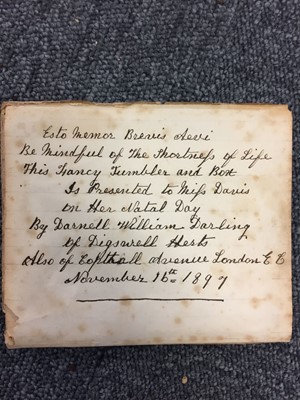 Esto Memor Brevis Aevi
Be Mindful of The Shortness of Life
This Fancy Tumbler and Box
Is Presented to Miss Davis
on Her Natal Day
By Darnell William Darling
of Digswell Herts
Also of Copthall Avenue London E C
November 16th 1897